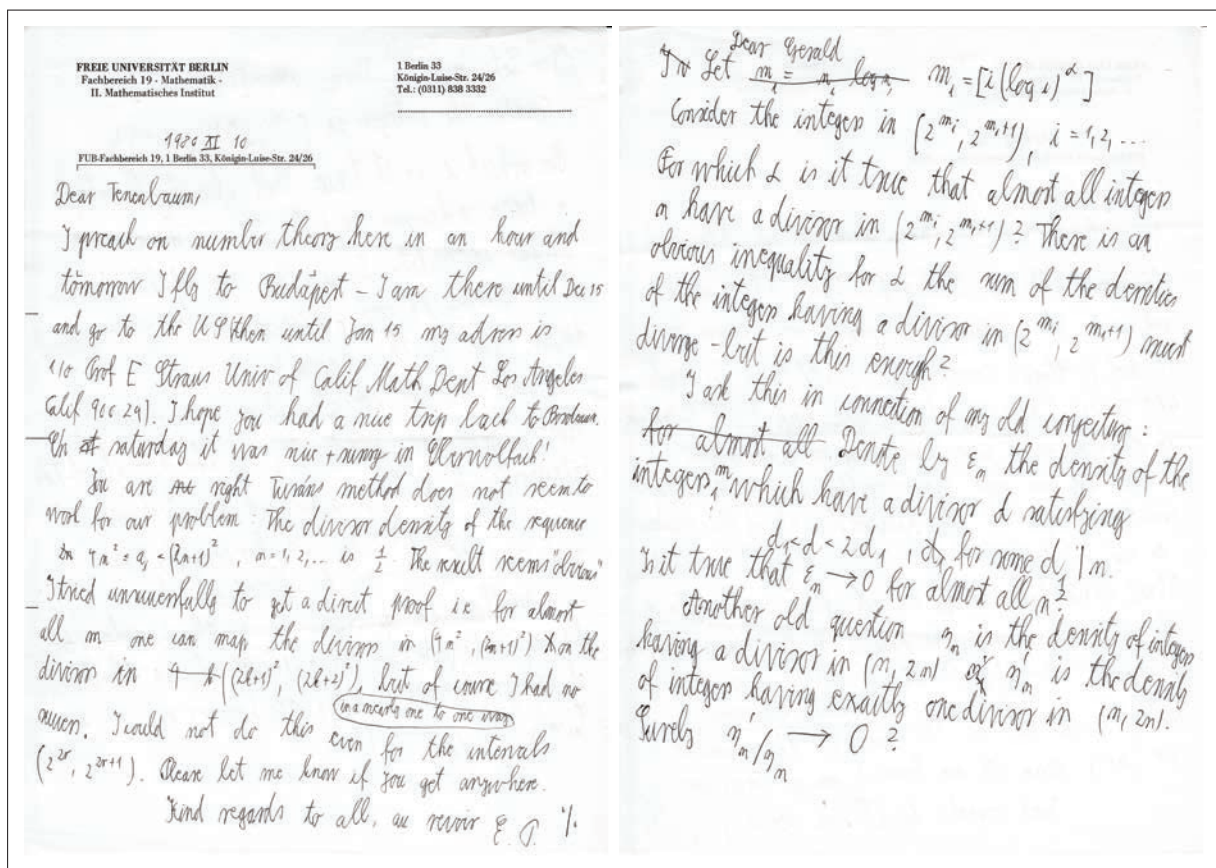 FREIE UNIVERSITÄT BERLIN
Fachbereich 19 - Mathematik -
II. Mathematisches Institut
1 Berlin 33
Königin-Luise-Str. 24/26
Tel.: (0311) 838 3332
1980 XI 10
FUB-Fachbereich 19, 1 Berlin 33, Königin-Luise-Str. 24/26
Dear Tenenbaum,
I preach on number theory here in an hour and
tomorrow I fly to Budapest – I am there until Dec 15
and go to the US (then until Jan 15 my adress is
c/o Prof E Straus Univ of Calif Math Dept Los Angeles
Calif 900 24). I hope you had a nice trip back to Bordeaux.
On saturday it was nice + sunny in Oberwolfach!
You are right Turáns method does not seem to
work for our problem: The divisor density of the sequence
4n² ≤ a_i < (2n+1)², n = 1, 2, ... is 1/2. The result seems "obvious"
I tried unsuccessfully to get a direct proof i.e. for almost
all m one can map the divisors in (4n², (2n+1)²) on the
divisors in ((2k+1)², (2k+2)²), but of course I had no
in a nearly one to one way
success. I could not do this even for the intervals
(2^{2r}, 2^{2r+1}). Please let me know if you get anywhere.
Kind regards to all, au revoir E. P. %.
Dear Gerald
Let m_i = [i (log i)^α]
Consider the integers in (2^{m_i}, 2^{m_i+1}), i = 1, 2, ...
For which α is it true that almost all integers
n have a divisor in (2^{m_i}, 2^{m_i+1})? There is an
obvious inequality for α the sum of the densities
of the integers having a divisor in (2^{m_i}, 2^{m_i+1}) must
diverge – but is this enough?
I ask this in connection of my old conjecture:
for almost all Denote by ε_n the density of the
integers m which have a divisor d satisfying
d_1 < d < 2d_1, for some d_1 | n.
Is it true that ε_n → 0 for almost all n?
Another old question η_n is the density of integers
having a divisor in (n, 2n) η'_n is the density
of integers having exactly one divisor in (n, 2n).
Surely η'_n / η_n → 0 ?